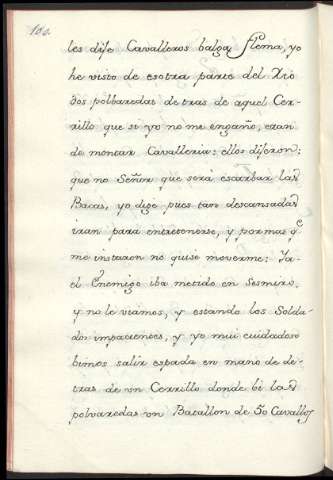 100.
les dije Cavalleros balga flema, yo
he visto de esotra parte del Rio
dos polbaredas detras de aquel Cer-
rillo que si yo no me engaño, eran
de montar Cavalleria: ellos dijeron:
que no Señor que será escarbar las
Bacas, yo dige pues tan descansadas
iran para entretenerse, y por mas q.e
me instaron no quise moverme: Ya
el Enemigo iba metido en
y no le viamos, y estando los Solda-
dos impacientes, y yo mui cuidadoso
bimos salir espada en mano de de-
tras de un Cerrillo donde bi las
polvaredas un Batallon de 50 Cavallos